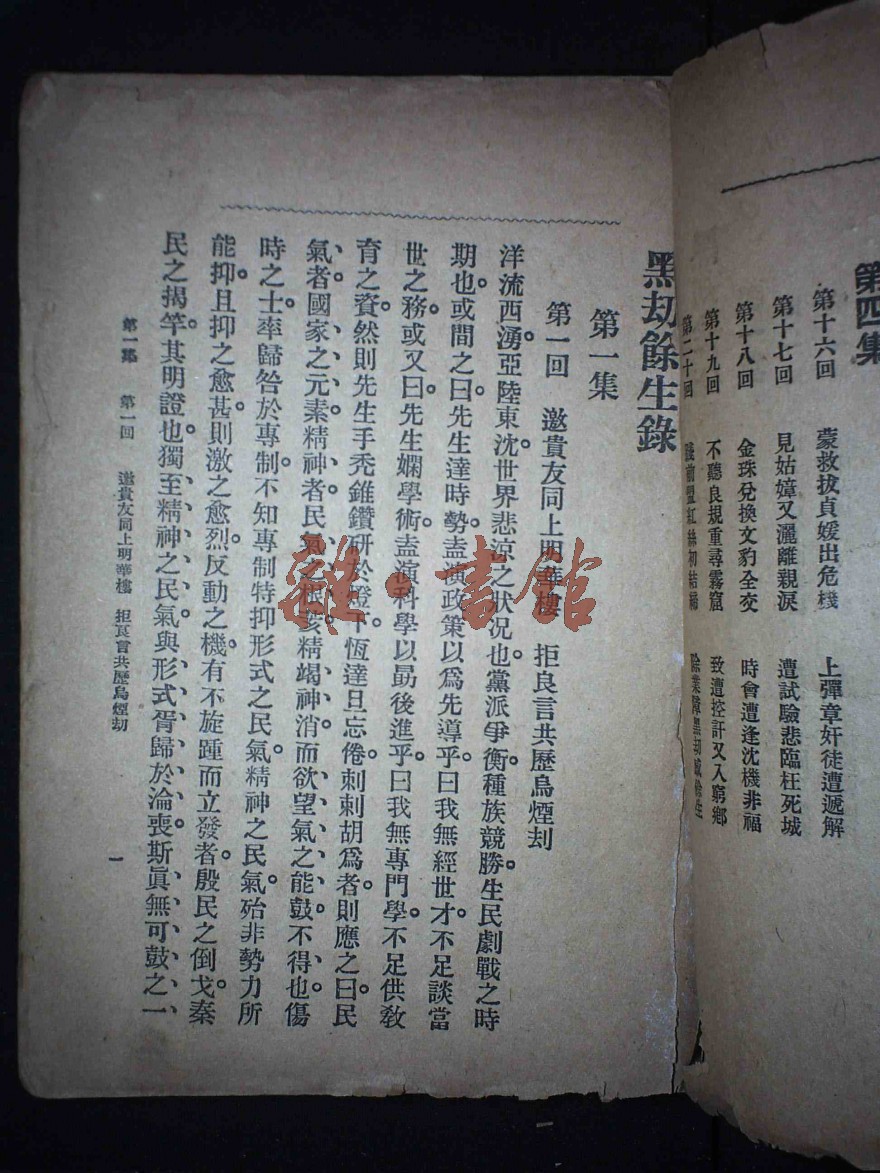 第四集
第十六回　蒙救拔貞媛出危機　上彈章奸徒遭遞解
第十七回　見姑嫜又灑離親淚　遭試驗悲臨枉死城
第十八回　金珠兌換文豹全交　時會遭逢沈機非福
第十九回　不聽良規重尋霧窟　致遭控訐又入窮鄉
第二十回　踐前盟紅絲初結締　除業障黑劫感餘生
黑劫餘生錄
第一集
第一回　邀貴友同上明華樓　拒良言共歷烏煙刼
洋流西湧。亞陸東沈。世界悲涼之狀况也。黨派爭衡。種族競勝。生民劇戰之時
期也。或間之曰。先生達時勢。盍演政策以爲先導乎。曰我無經世才。不足談當
世之務。或又曰。先生嫻學術。盍演科學以勗後進乎。曰我無專門學。不足供敎
育之資。然則先生手禿錐。鑽研於燈下。恆達旦忘倦。刺刺胡爲者。則應之曰。民
氣者。國家之元素。精神者。民氣之根荄。精竭神消。而欲望氣之能鼓。不得也。傷
時之士。率歸咎於專制。不知專制特抑形式之民氣。精神之民氣。殆非勢力所
能抑。且抑之愈甚。則激之愈烈。反動之機。有不旋踵而立發者。殷民之倒戈。秦
民之揭竿。其明證也。獨至精神之民氣。與形式胥歸於淪喪。斯眞無可鼓之一
第一集　第一回　邀貴友同上明華樓　拒良言共歷烏煙刧
一
雜·書館